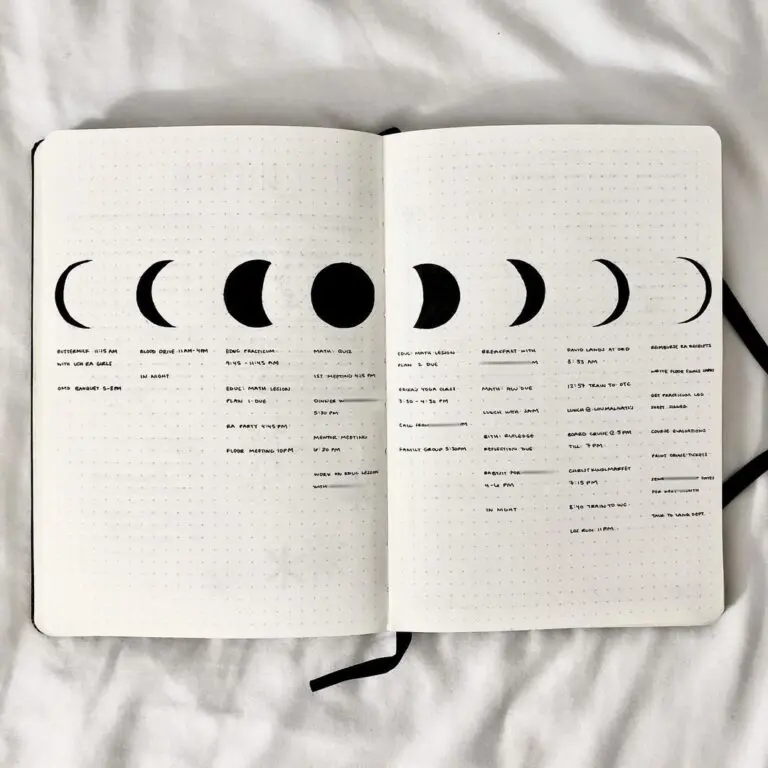 BUTTERMILK 11:15 AM
WITH RA GIRLS
BANQUET 5-8PM
BLOOD DRIVE 11AM-4PM
IN NIGHT
EDUC PRACTICUM
9:45 - 11:45 AM
EDUC: MATH LESSON
PLAN 1 DUE
RA PARTY 4:45 PM
FLOOR MEETING 10PM
MATH: QUIZ
1ST MEETING 4:15 PM
DINNER W
5:30 PM
MENTOR MEETING
6:30 PM
WORK ON EDUC LESSON
WITH
EDUC: MATH LESSON
PLAN 2 DUE
YOGA CLASS
3:30 - 4:30 PM
CALL FROM M
FAMILY GROUP 5:30PM
BREAKFAST WITH
M
MATH: DUE
LUNCH WITH SAM
BITH: RUTLEDGE
REFLECTION DUE
BABYSIT FOR
4-6 PM
IN NIGHT
DAVID LANDS AT ORD
8:53 AM
12:57 TRAIN TO OTC
LUNCH @ WALNUTS
BOARD CRUISE @ 5 PM
TILL 7 PM
CHRISTKINDLMARKET
7:15 PM
8:40 TRAIN TO WC
LOC RUN 11PM
REIMBURSE RA RECEIPTS
WRITE FLOOR FINALS CARDS
GET PRACTICUM LOG
SHEET SIGNED
COURSE EVALUATIONS
PRINT CRUISE TICKETS
SEND DATES
FOR
TALK TO LANG DEPT.